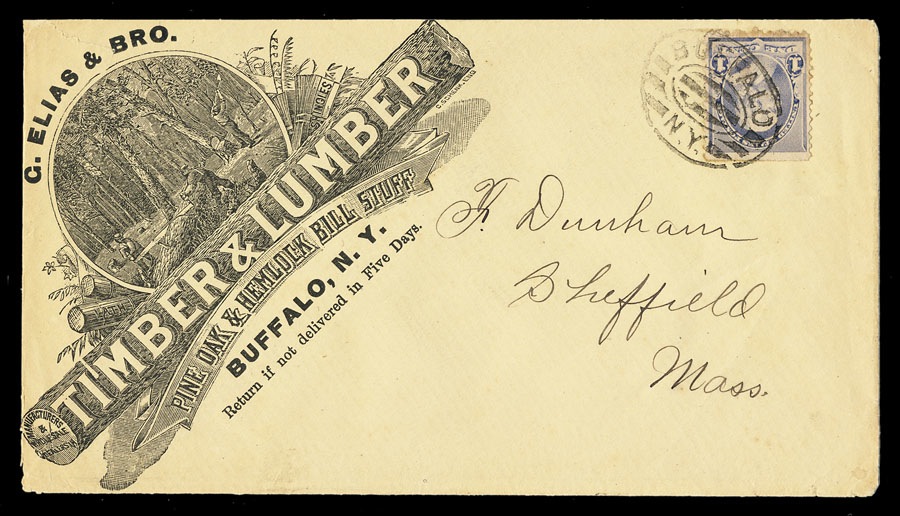 G. ELIAS & BRO.
SHINGLES
TIMBER & LUMBER
PINE OAK & HEMLOCK BILL STUFF
BUFFALO, N. Y.
Return if not delivered in Five Days.
LATH
MANUFACTURERS
&
WHOLESALE
DEALERS IN
1 1
N.Y.
F. Dunham
Sheffield
Mass.